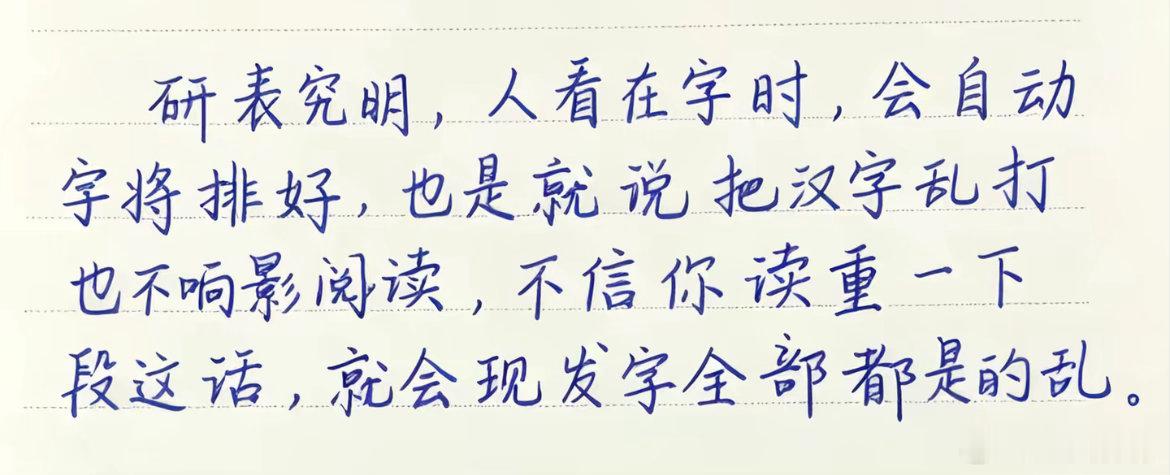 研表究明，人看在字时，会自动
字将排好，也是就说把汉字乱打
也不响影阅读，不信你读重一下
段这话，就会现发字全部都是的乱。